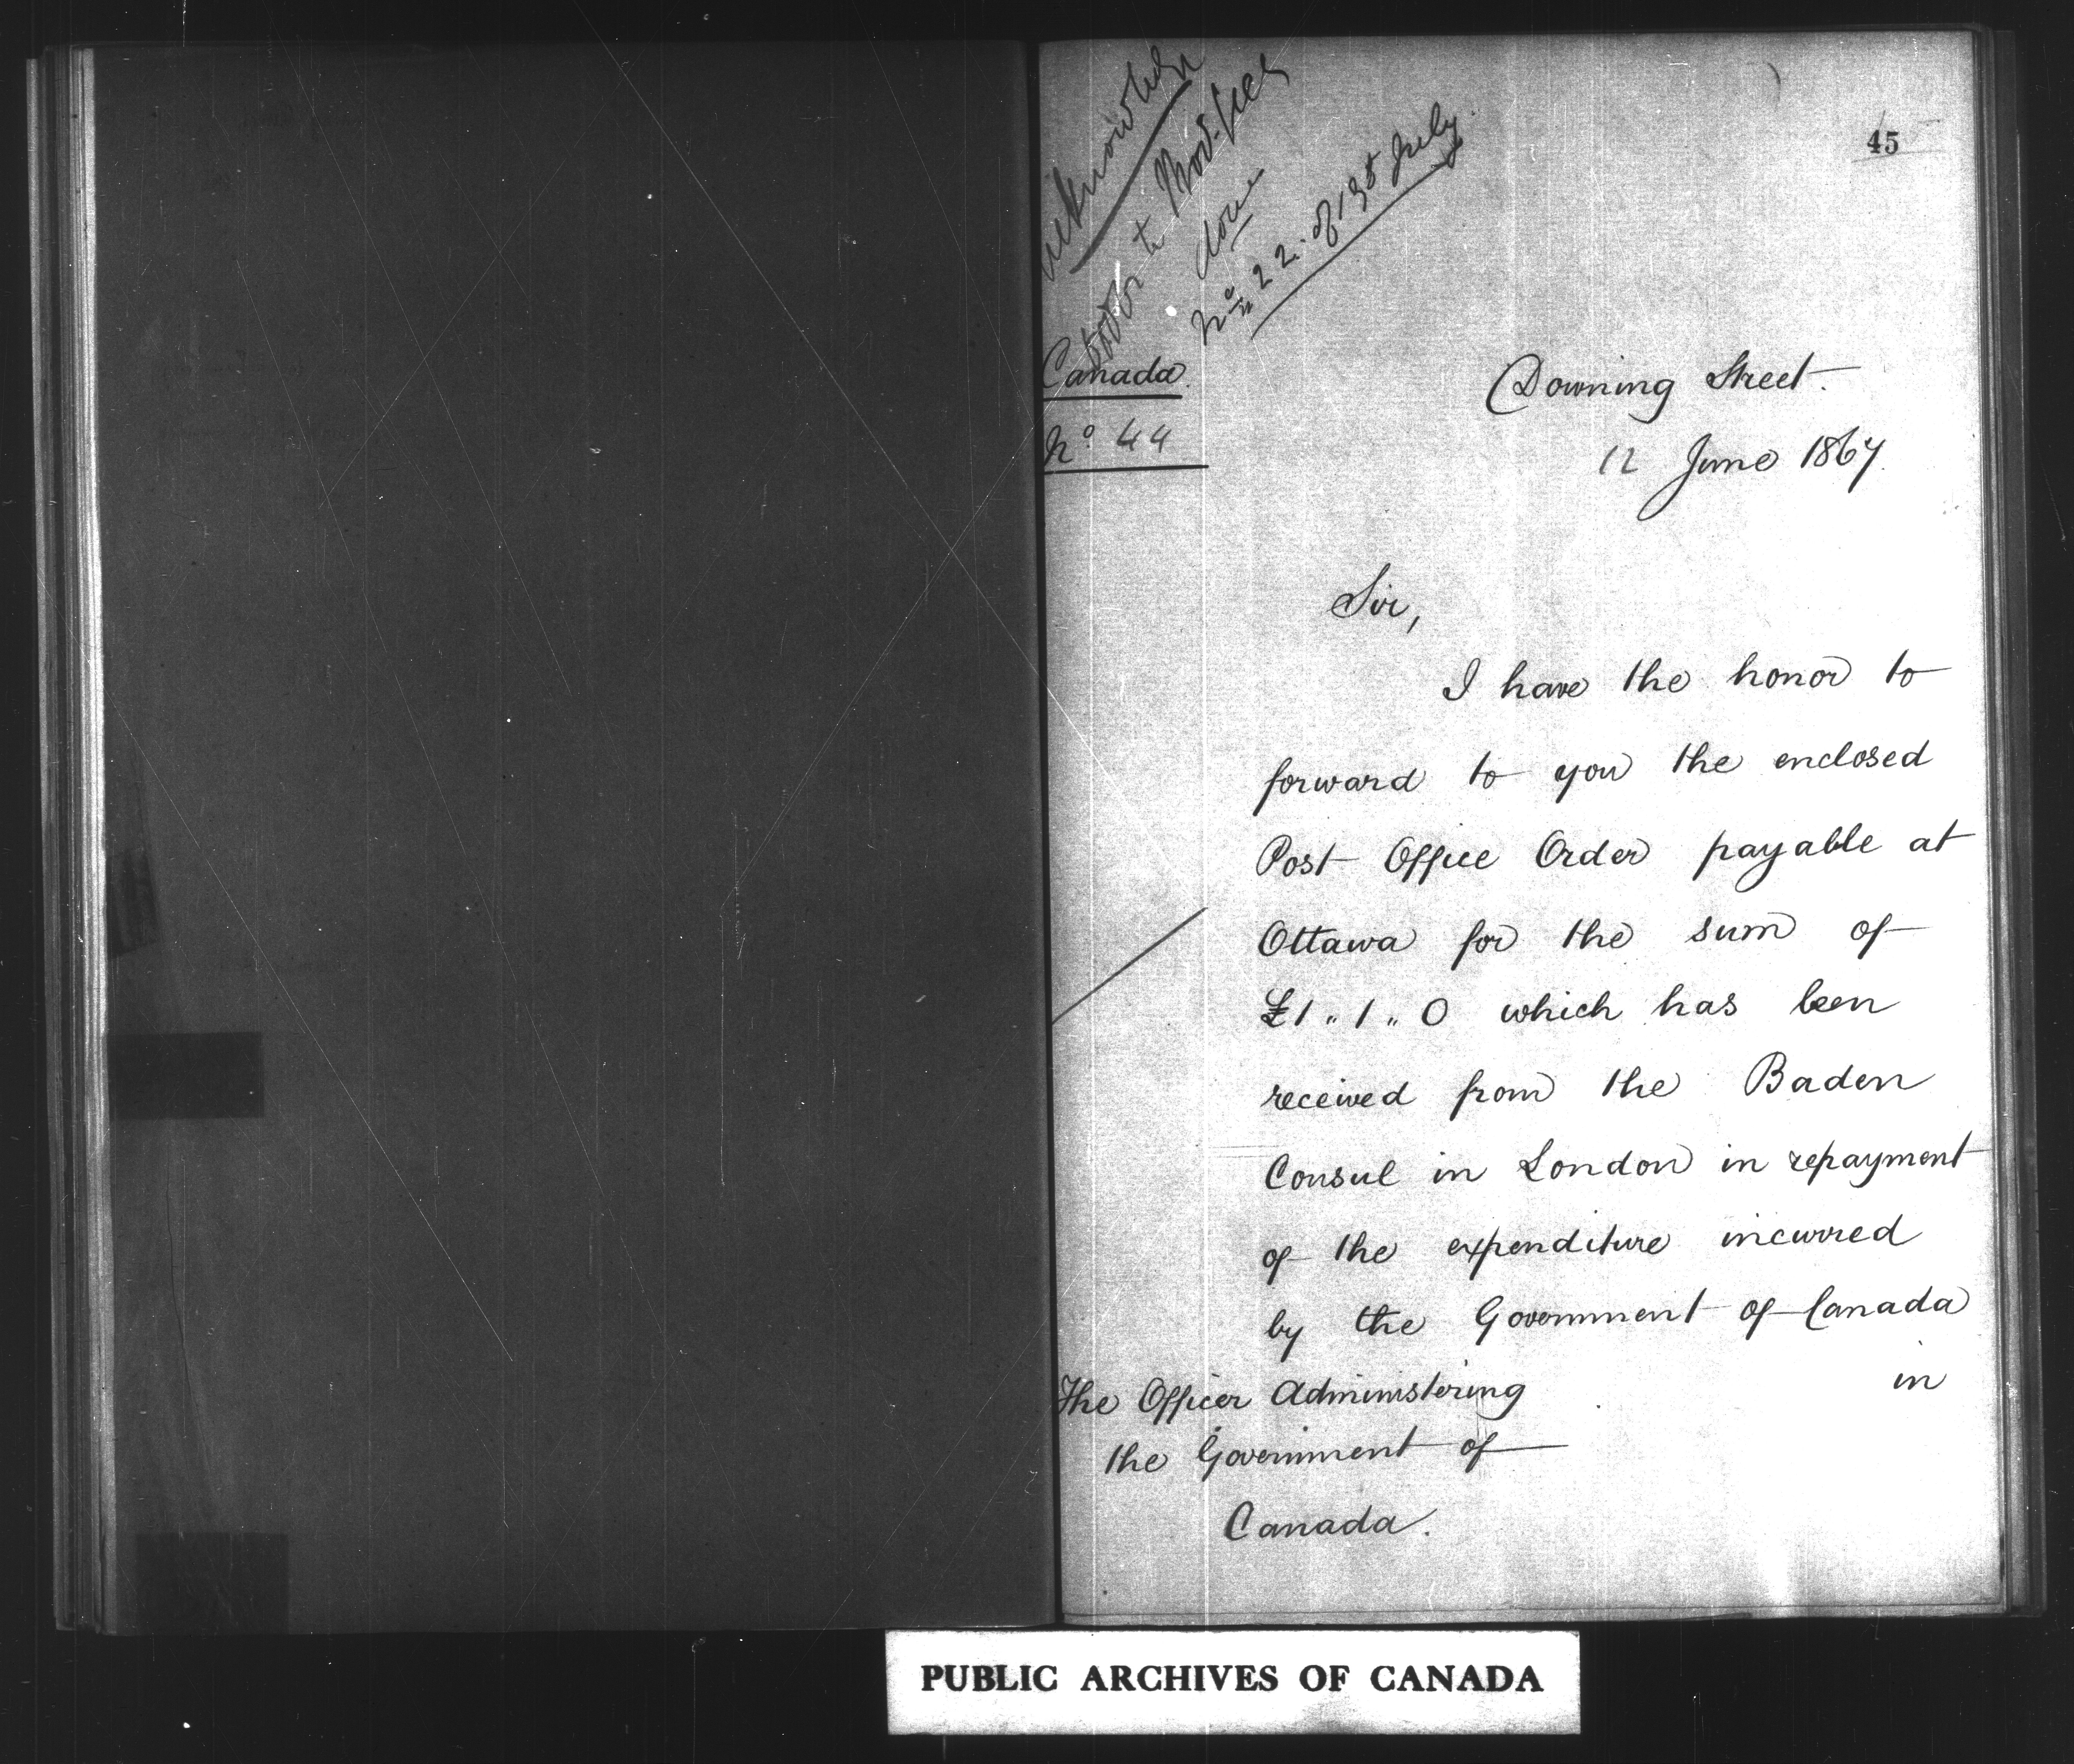 45
Acknowledged
done
No 22. of 13th July
Canada.
No 44
Downing Street.
12 June 1867.
Sir,
I have the honor to
forward to you the enclosed
Post Office Order payable at
Ottawa for the sum of
£1 " 1 " 0 which has been
received from the Baden
Consul in London in repayment
of the expenditure incurred
by the Government of Canada
in
The Officer Administering
the Government of
Canada.
PUBLIC ARCHIVES OF CANADA